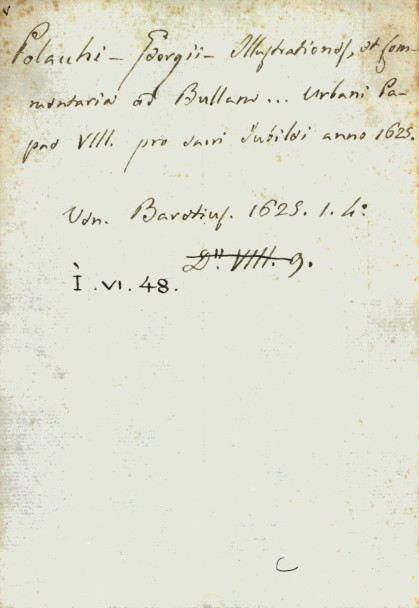 Polacchi - Georgii - Illustrationes, et Com-
mentaria ad Bullam ... Urbani Pa-
pae VIII. pro sacri Jubilei anno 1625.
Ven. Baretius. 1625. 1. 4º
D". VIII. 9.
I . VI . 48 .
C